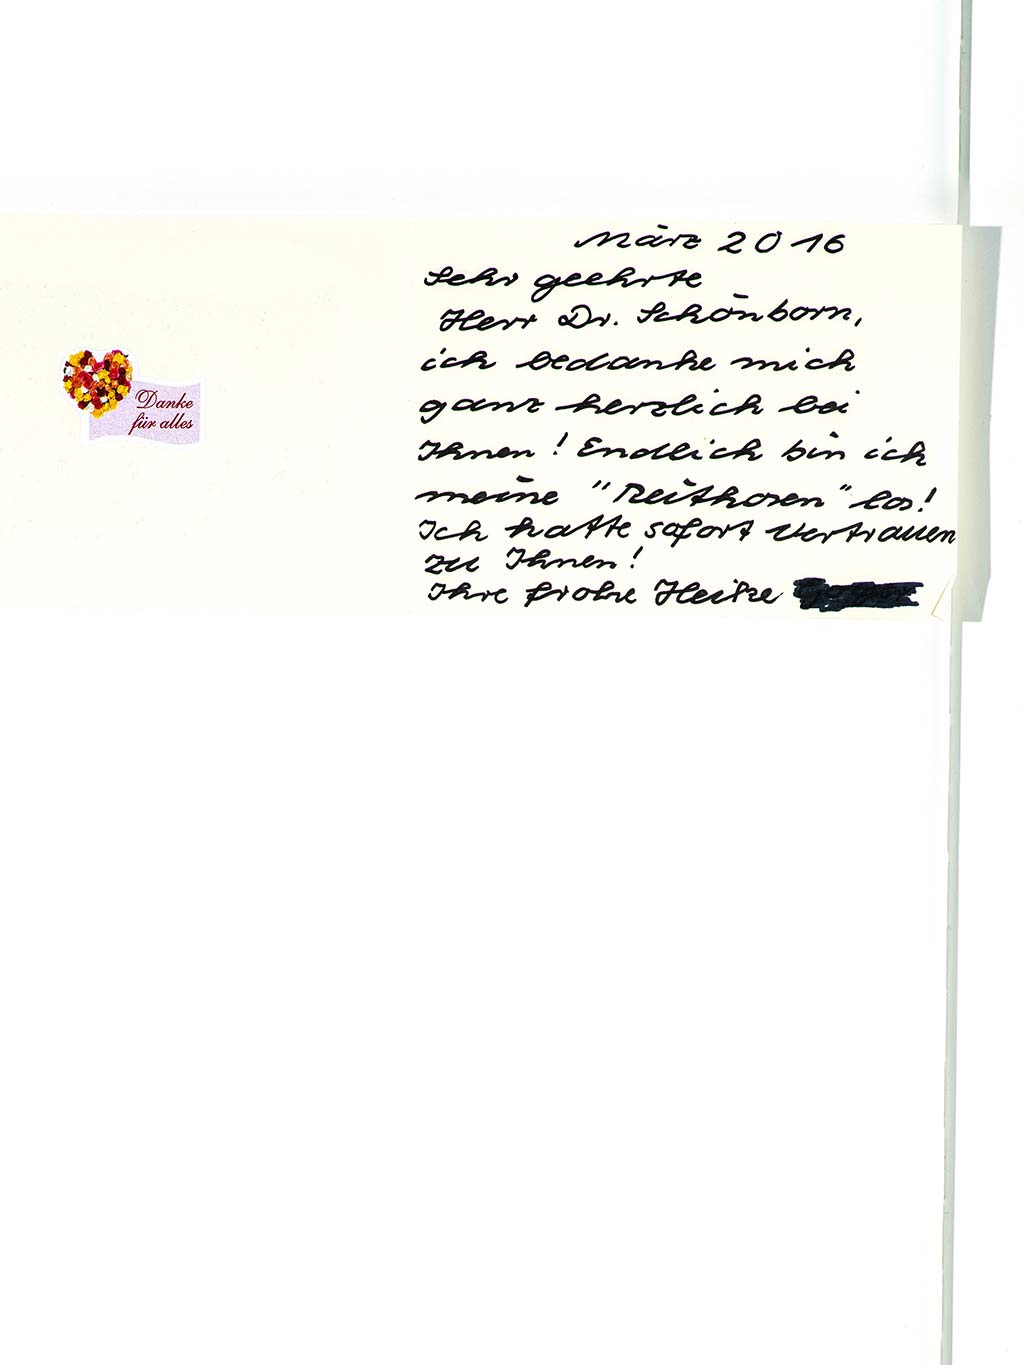 Danke
für alles
März 2016
Sehr geehrte
Herr Dr. Schönborn,
ich bedanke mich
ganz herzlich bei
Ihnen! Endlich bin ich
meine "Reithosen" los!
Ich hatte sofort Vertrauen
zu Ihnen!
Ihre frohe Heike